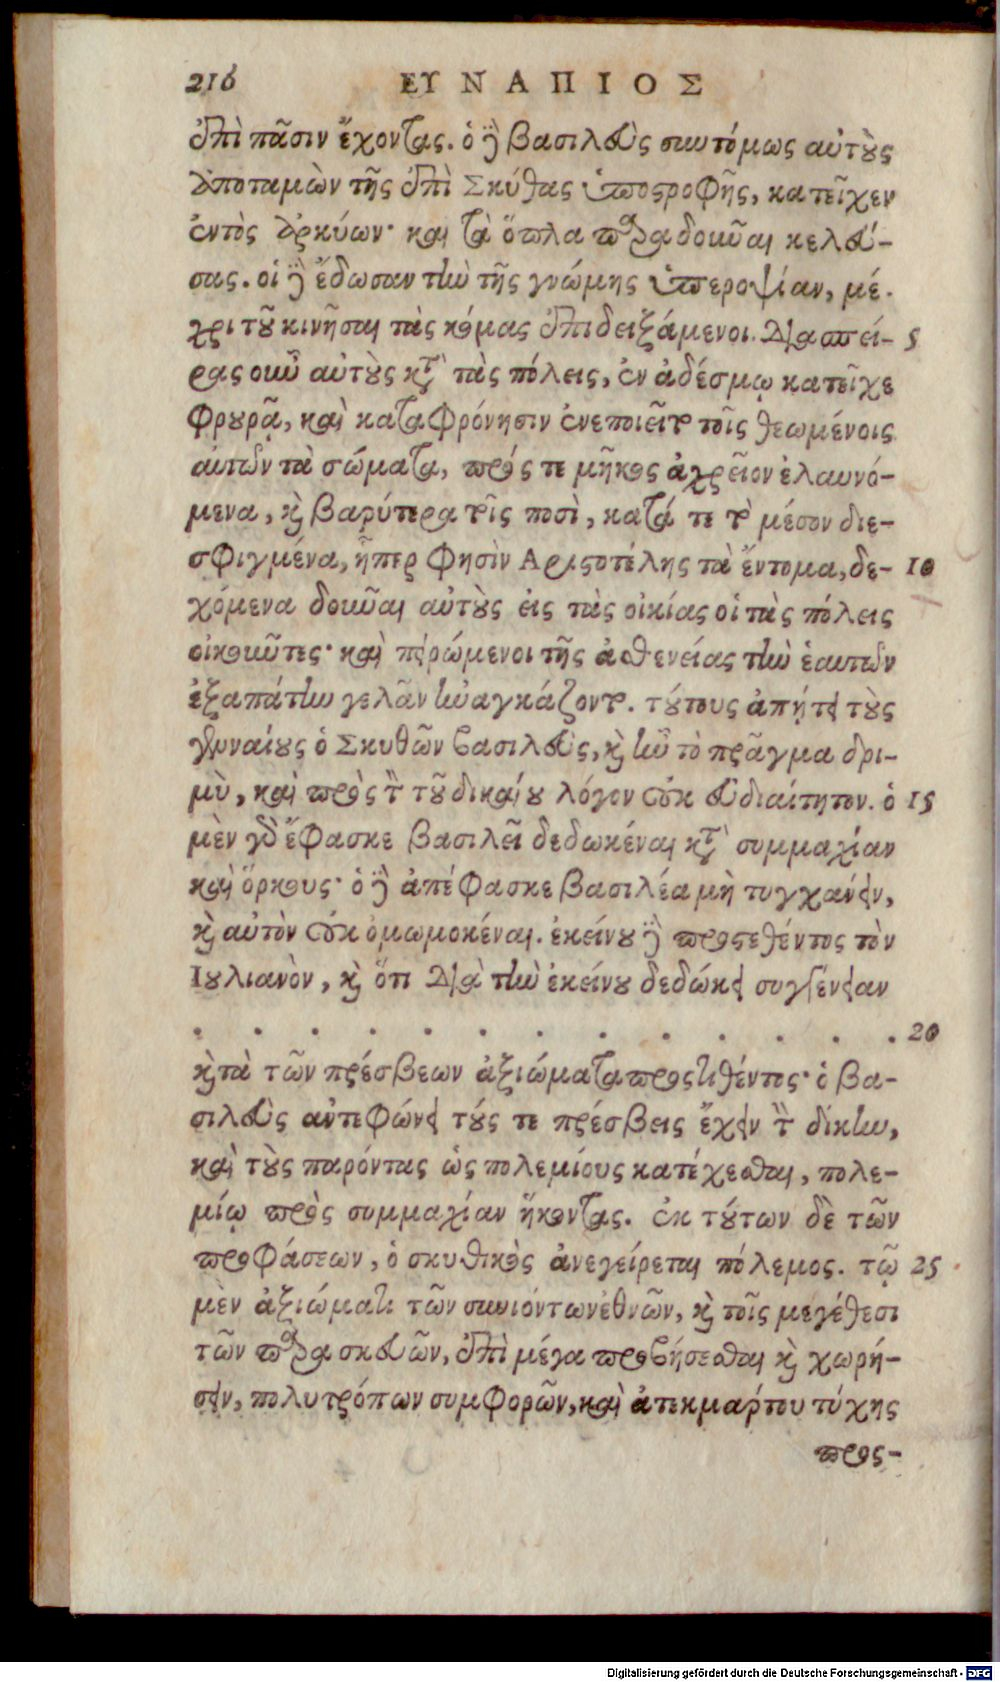 216 ΕΥΝΑΠΙΟΣ
ἐπὶ πᾶσιν ἔχοντας. ὁ δὲ βασιλεὺς συντόμως αὐτοὺς
ἀποταμὼν τῆς ἐπὶ Σκύθας ὑποστροφῆς, κατεῖχεν
ἐντὸς ἀρκύων· καὶ τὰ ὅπλα παραδοῦναι κελεύ-
σας. οἱ δὲ ἔδωσαν τὴν τῆς γνώμης ὑπεροψίαν, μέ-
χρι τοῦ κινῆσαι τὰς κόμας ἐπιδειξάμενοι. Διασπεί- 5
ρας οὖν αὐτοὺς κατὰ τὰς πόλεις, ἐν ἀδέσμῳ κατεῖχε
φρουρᾷ, καὶ καταφρόνησιν ἐνεποιεῖτο τοῖς θεωμένοις
αὐτῶν τὰ σώματα, πρός τε μῆκος ἀχρεῖον ἐλαυνό-
μενα, καὶ βαρύτερα τοῖς ποσὶ, κατά τε τὸ μέσον διε-
σφιγμένα, ᾗπερ φησὶν Αριστοτέλης τὰ ἔντομα, δε- 10
χόμενα δοῦναι αὐτοὺς εἰς τὰς οἰκίας οἱ τὰς πόλεις
οἰκοῦντες· καὶ πειρώμενοι τῆς ἀσθενείας τὴν ἑαυτῶν
ἐξαπάτην γελᾶν ἠναγκάζοντο. τούτους ἀπῄτει τοὺς
γενναίους ὁ Σκυθῶν βασιλεὺς, καὶ ἦν τὸ πρᾶγμα δρι-
μὺ, καὶ πρὸς τὸν τοῦ δικαίου λόγον οὐκ εὐδιαίτητον. ὁ 15
μὲν γὰρ ἔφασκε βασιλεῖ δεδωκέναι κατὰ συμμαχίαν
καὶ ὅρκους· ὁ δὲ ἀπέφασκε βασιλέα μὴ τυγχάνειν,
καὶ αὐτὸν οὐκ ὀμωμοκέναι. ἐκείνου δὲ προστεθέντος τὸν
Ιουλιανὸν, καὶ ὅτι διὰ τὴν ἐκείνου δεδώκει συγγένειαν
. . . . . . . . . . . . . 20
καὶ τὰ τῶν πρέσβεων ἀξιώματα προστιθέντος· ὁ βα-
σιλεὺς ἀντεφώνει τούς τε πρέσβεις ἔχειν τὴν δίκην,
καὶ τοὺς παρόντας ὡς πολεμίους κατέχεσθαι, πολε-
μίῳ πρὸς συμμαχίαν ἥκοντας. ἐκ τούτων δὲ τῶν
προφάσεων, ὁ σκυθικὸς ἀνεγείρεται πόλεμος. τῷ 25
μὲν ἀξιώματι τῶν συνιόντων ἐθνῶν, καὶ τοῖς μεγέθεσι
τῶν παρασκευῶν, ἐπὶ μέγα προβήσεσθαι καὶ χωρή-
σειν, πολυτρόπων συμφορῶν, καὶ ἀτεκμάρτου τύχης
προς-
Digitalisierung gefördert durch die Deutsche Forschungsgemeinschaft - DFG